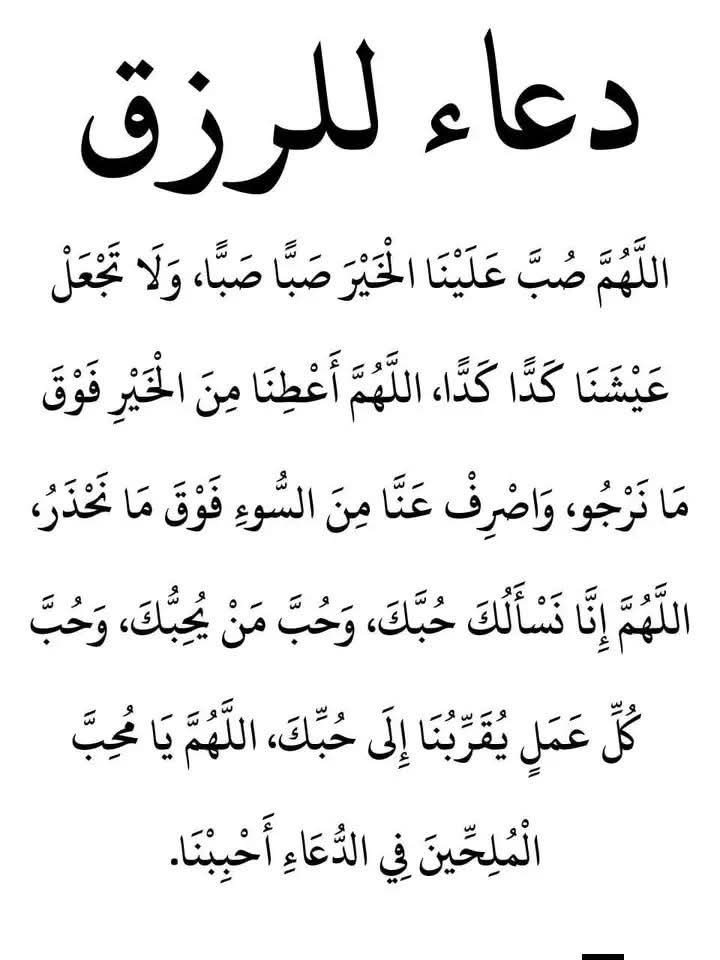 دعاء للرزق
اللَّهُمَّ صُبَّ عَلَيْنَا الْخَيْرَ صَبًّا صَبًّا، وَلَا تَجْعَلْ
عَيْشَنَا كَدًّا كَدًّا، اللَّهُمَّ أَعْطِنَا مِنَ الْخَيْرِ فَوْقَ
مَا نَرْجُو، وَاصْرِفْ عَنَّا مِنَ السُّوءِ فَوْقَ مَا نَحْذَرُ،
اللَّهُمَّ إِنَّا نَسْأَلُكَ حُبَّكَ، وَحُبَّ مَنْ يُحِبُّكَ، وَحُبَّ
كُلِّ عَمَلٍ يُقَرِّبُنَا إِلَى حُبِّكَ، اللَّهُمَّ يَا مُحِبَّ
الْمُلِحِّينَ فِي الدُّعَاءِ أَحْبِبْنَا.